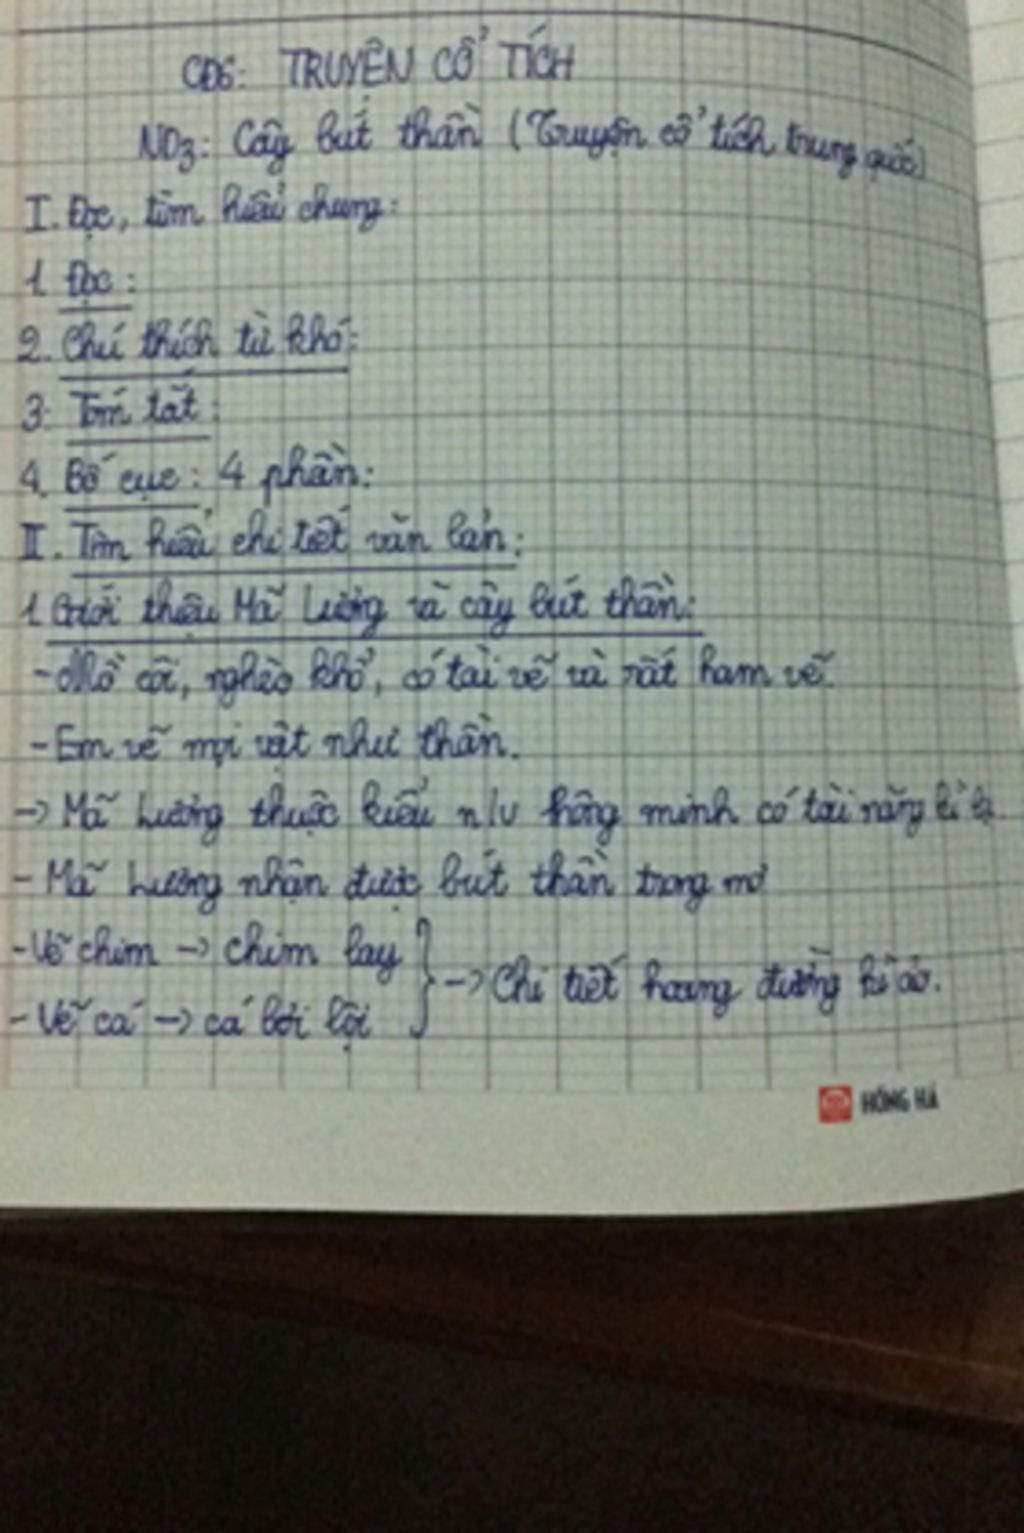 CĐ6: TRUYỆN CỔ TÍCH
ND3: Cây bút thần (Truyện cổ tích trung quốc)
I. Đọc, tìm hiểu chung:
1. Đọc:
2. Chú thích từ khó:
3. Tóm tắt:
4. Bố cục: 4 phần:
II. Tìm hiểu chi tiết văn bản:
1. Giới thiệu Mã Lương và cây bút thần:
- Mồ côi, nghèo khổ, có tài vẽ và rất ham vẽ.
- Em vẽ mọi vật như thần.
-> Mã Lương thuộc kiểu n/v thông minh có tài năng kì lạ.
- Mã Lương nhận được bút thần trong mơ
- Vẽ chim -> chim bay
- Vẽ cá -> cá bơi lội
-> Chi tiết hoang đường kì ảo.
HỒNG HÀ